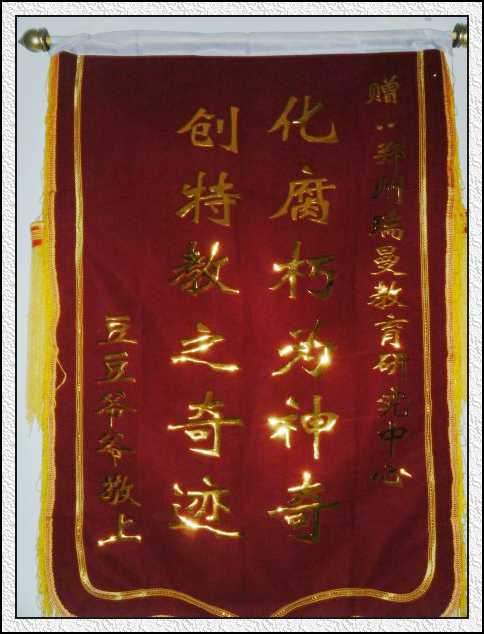 赠:郑州瑞曼教育研究中心
化腐朽为神奇
创特教之奇迹
豆豆爷爷敬上